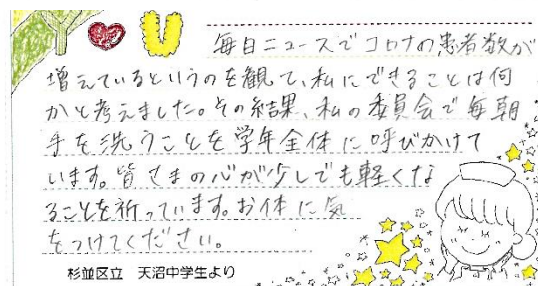 毎日ニュースでコロナの患者数が
増えているというのを観て、私にできることは何
かと考えました。その結果、私の委員会で毎朝
手を洗うことを学年全体に呼びかけて
います。皆さまの心が少しでも軽くな
ることを祈っています。お体に気
をつけてください。
杉並区立 天沼中学生より